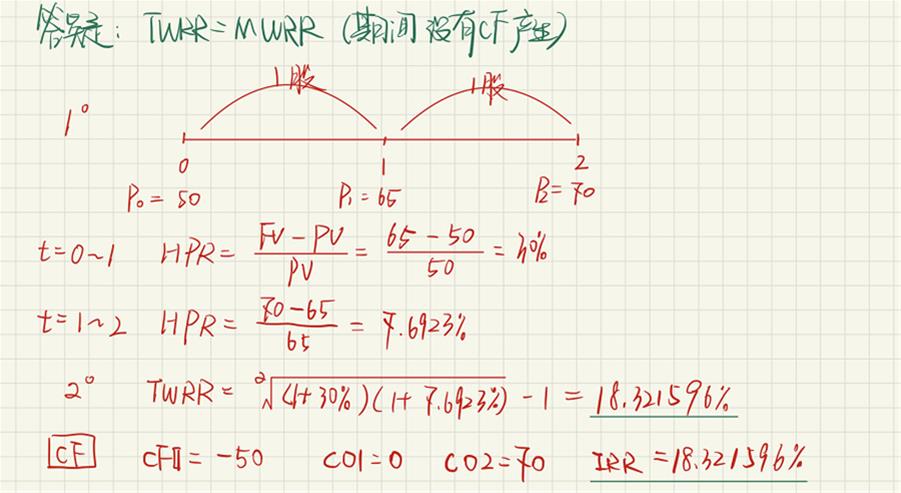 答疑: TWRR = MWRR (期间没有CF产生)
1股 1股
1°
0 1 2
P₀ = 50 P₁ = 65 P₂ = 70
t=0~1 HPR = (FV - PV)/PV = (65 - 50)/50 = 30%
t=1~2 HPR = (70-65)/65 = 7.6923%
2° TWRR = ²√(1+30%)(1+7.6923%) - 1 = 18.321596%
CF CF0 = -50 CO1=0 CO2=70 IRR = 18.321596%